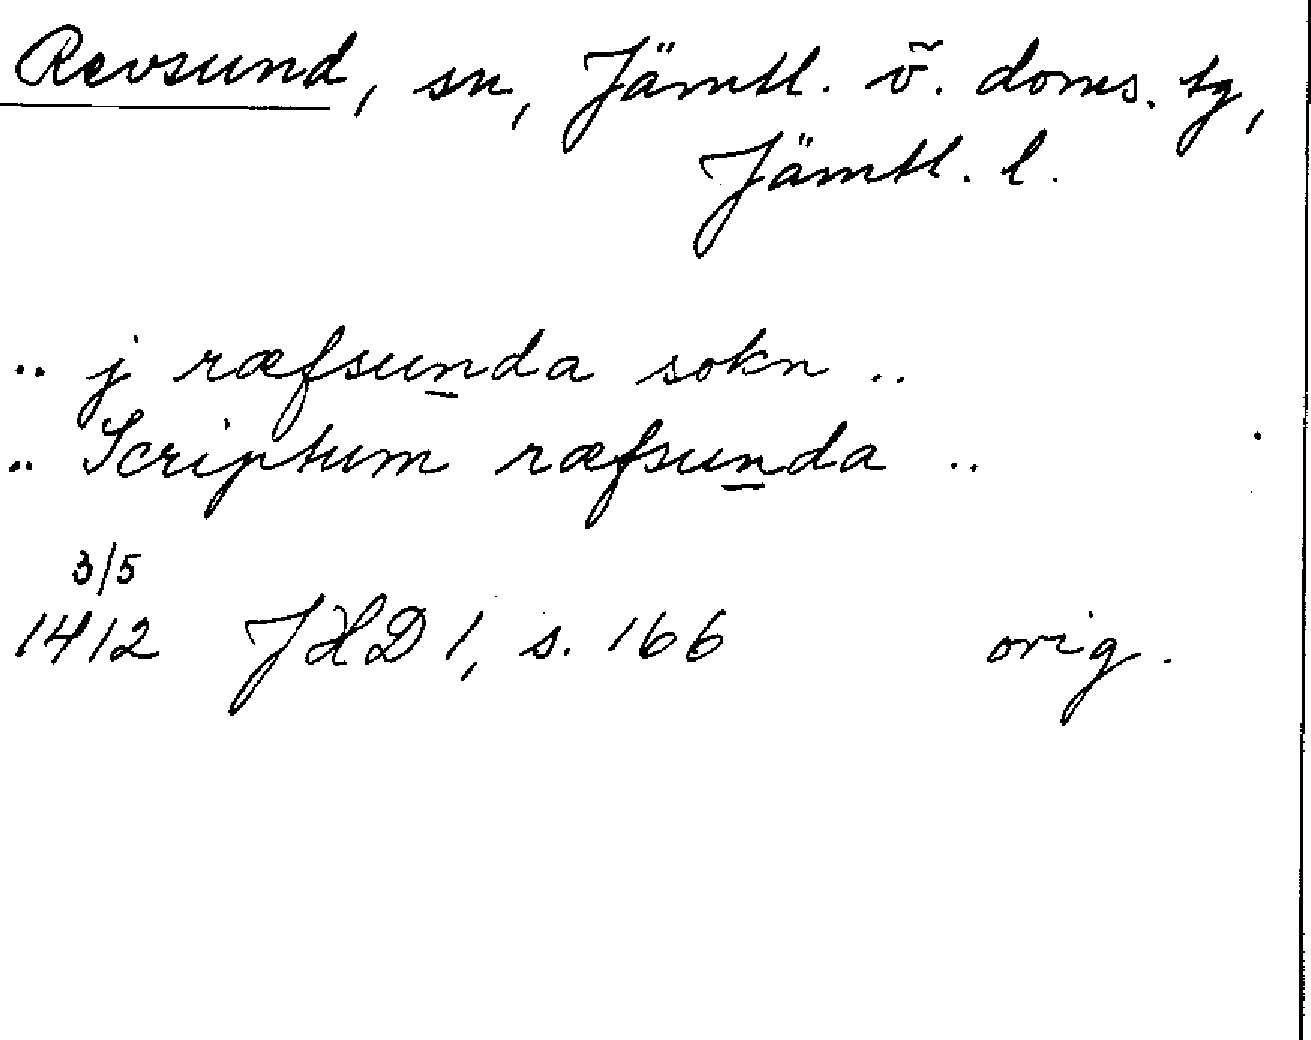 Revsund, sn, Jämtl. ö. doms. tg,
Jämtl. l.
.. j ræfsunda sokn ..
.. Scriptum ræfsunda ..
3/5
1412 JHD 1, s. 166 orig.